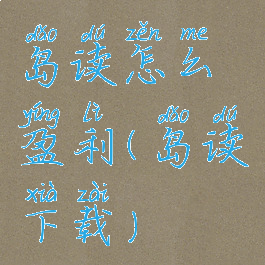 dǎo dú zěn me
岛读怎么
yíng lì dǎo dú
盈利(岛读
xià zài
下载)